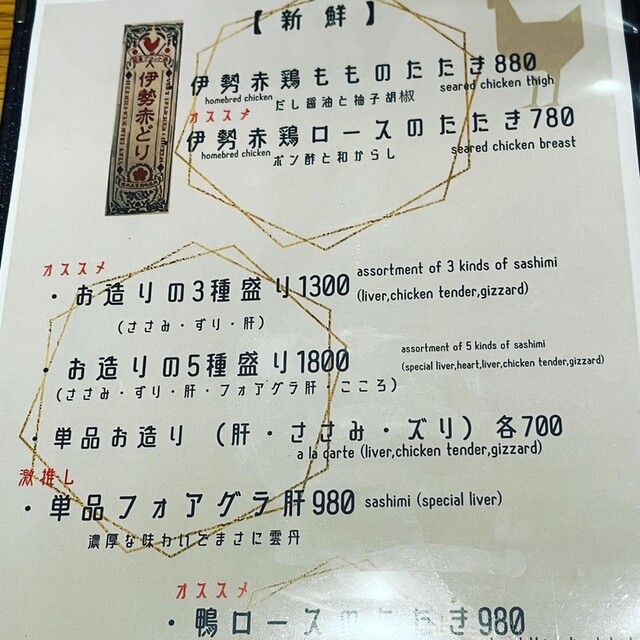 【新鮮】
伊勢赤どり
伊勢赤鶏もものたたき880
homebred chicken だし醤油と柚子胡椒 seared chicken thigh
オススメ
伊勢赤鶏ロースのたたき780
homebred chicken ポン酢と和からし seared chicken breast
オススメ
・お造りの3種盛り1300 assortment of 3 kinds of sashimi
(liver,chicken tender,gizzard)
(ささみ・ずり・肝)
・お造りの5種盛り1800 assortment of 5 kinds of sashimi
(special liver,heart,liver,chicken tender,gizzard)
(ささみ・ずり・肝・フォアグラ肝・こころ)
・単品お造り (肝・ささみ・ズリ) 各700
a la carte (liver,chicken tender,gizzard)
激推し
・単品フォアグラ肝980 sashimi (special liver)
濃厚な味わいどまさに雲丹
オススメ
・鴨ロースのたたき980